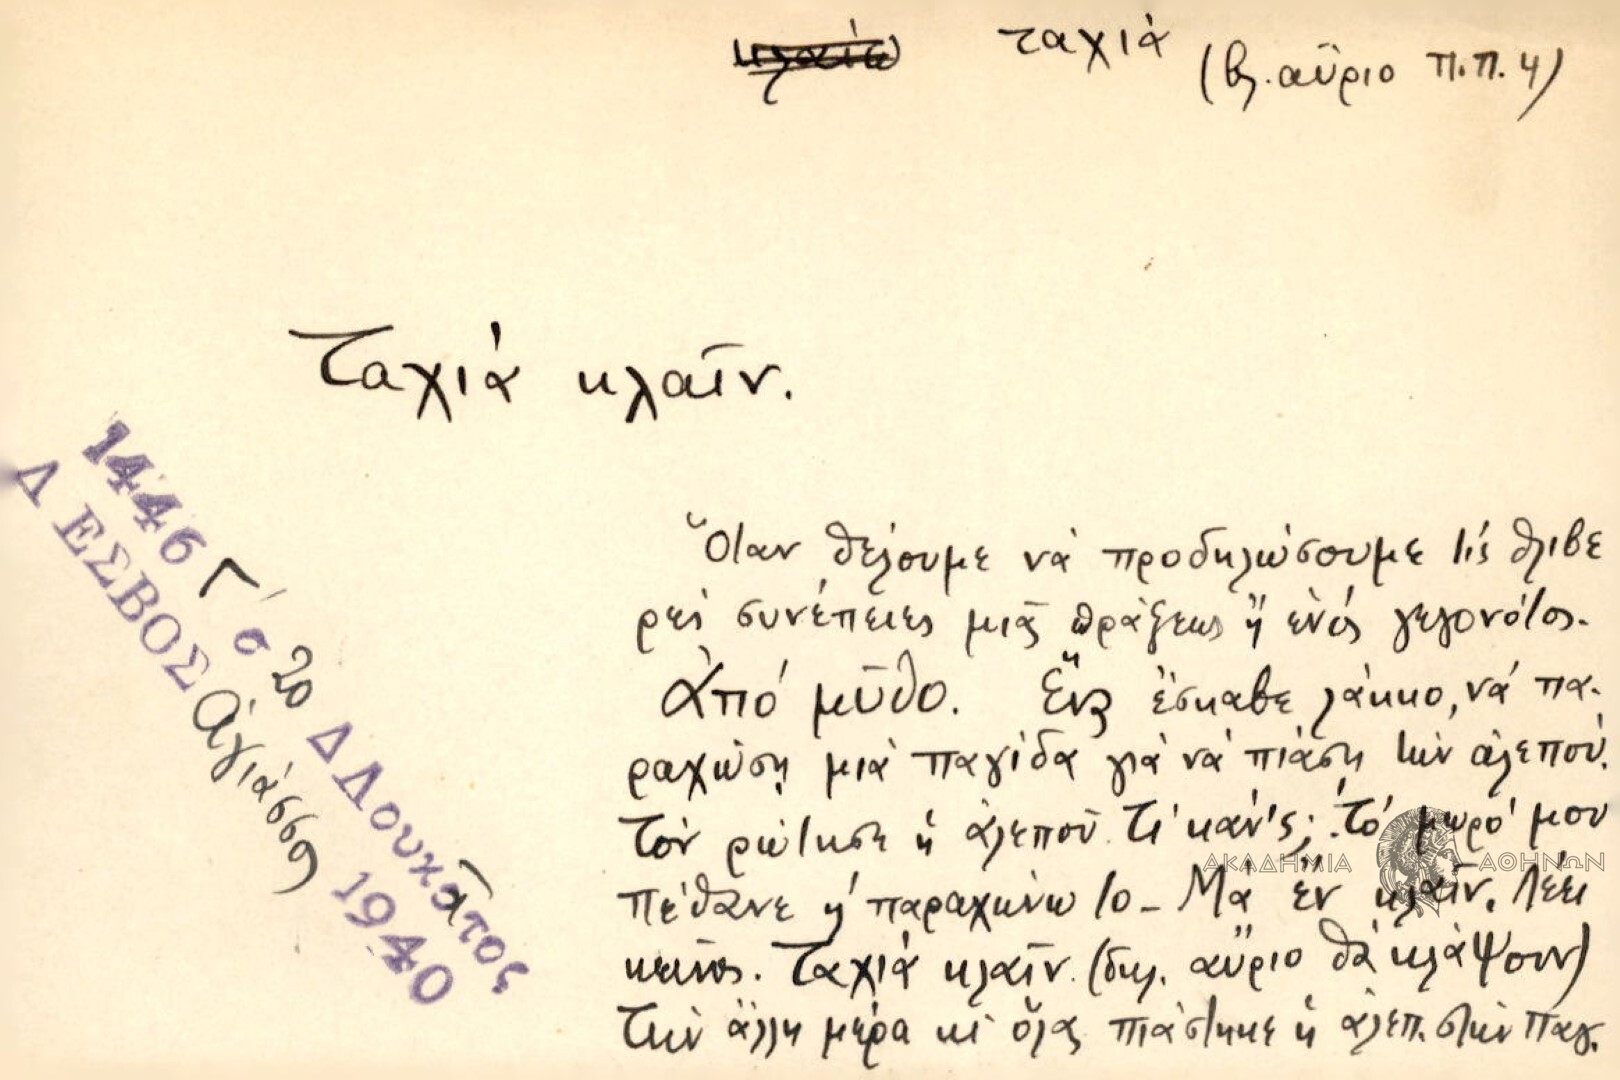 κλαίω ταχιά (βλ. αὔριο π.π. 4)
Ταχιά κλαῖν.
1446 Γ' σ 20 Δ Λουκᾶτος
ΛΕΣΒΟΣ Ἁγιάσσο 1940
Ὅταν θέλουμε νὰ προδηλώσουμε τὶς θλιβε
ρές συνέπειες μιᾶς πράξεως ἤ ἑνός γεγονότος.
Ἀπό μῦθο. Ἕνας ἔσκαβε λάκκο, νά πα-
ραχώση μιά παγίδα γιά νά πιάση τήν ἀλεπού.
Τόν ρώτησε ἡ ἀλεποῦ. Τί κάν'ς; Τό μωρό μου
πέθανε κι παραχώνω το - Μά ἕν κλαῖν. Λέει
κεῖνος. Ταχιά κλαῖν. (δηλ. αὔριο θά κλάψουν)
Τήν ἄλλη μέρα κι ὅλας πιάστηκε ἡ ἀλεπ. στήν παγ.
ΑΚΑΔΗΜΙΑ ΑΘΗΝΩΝ